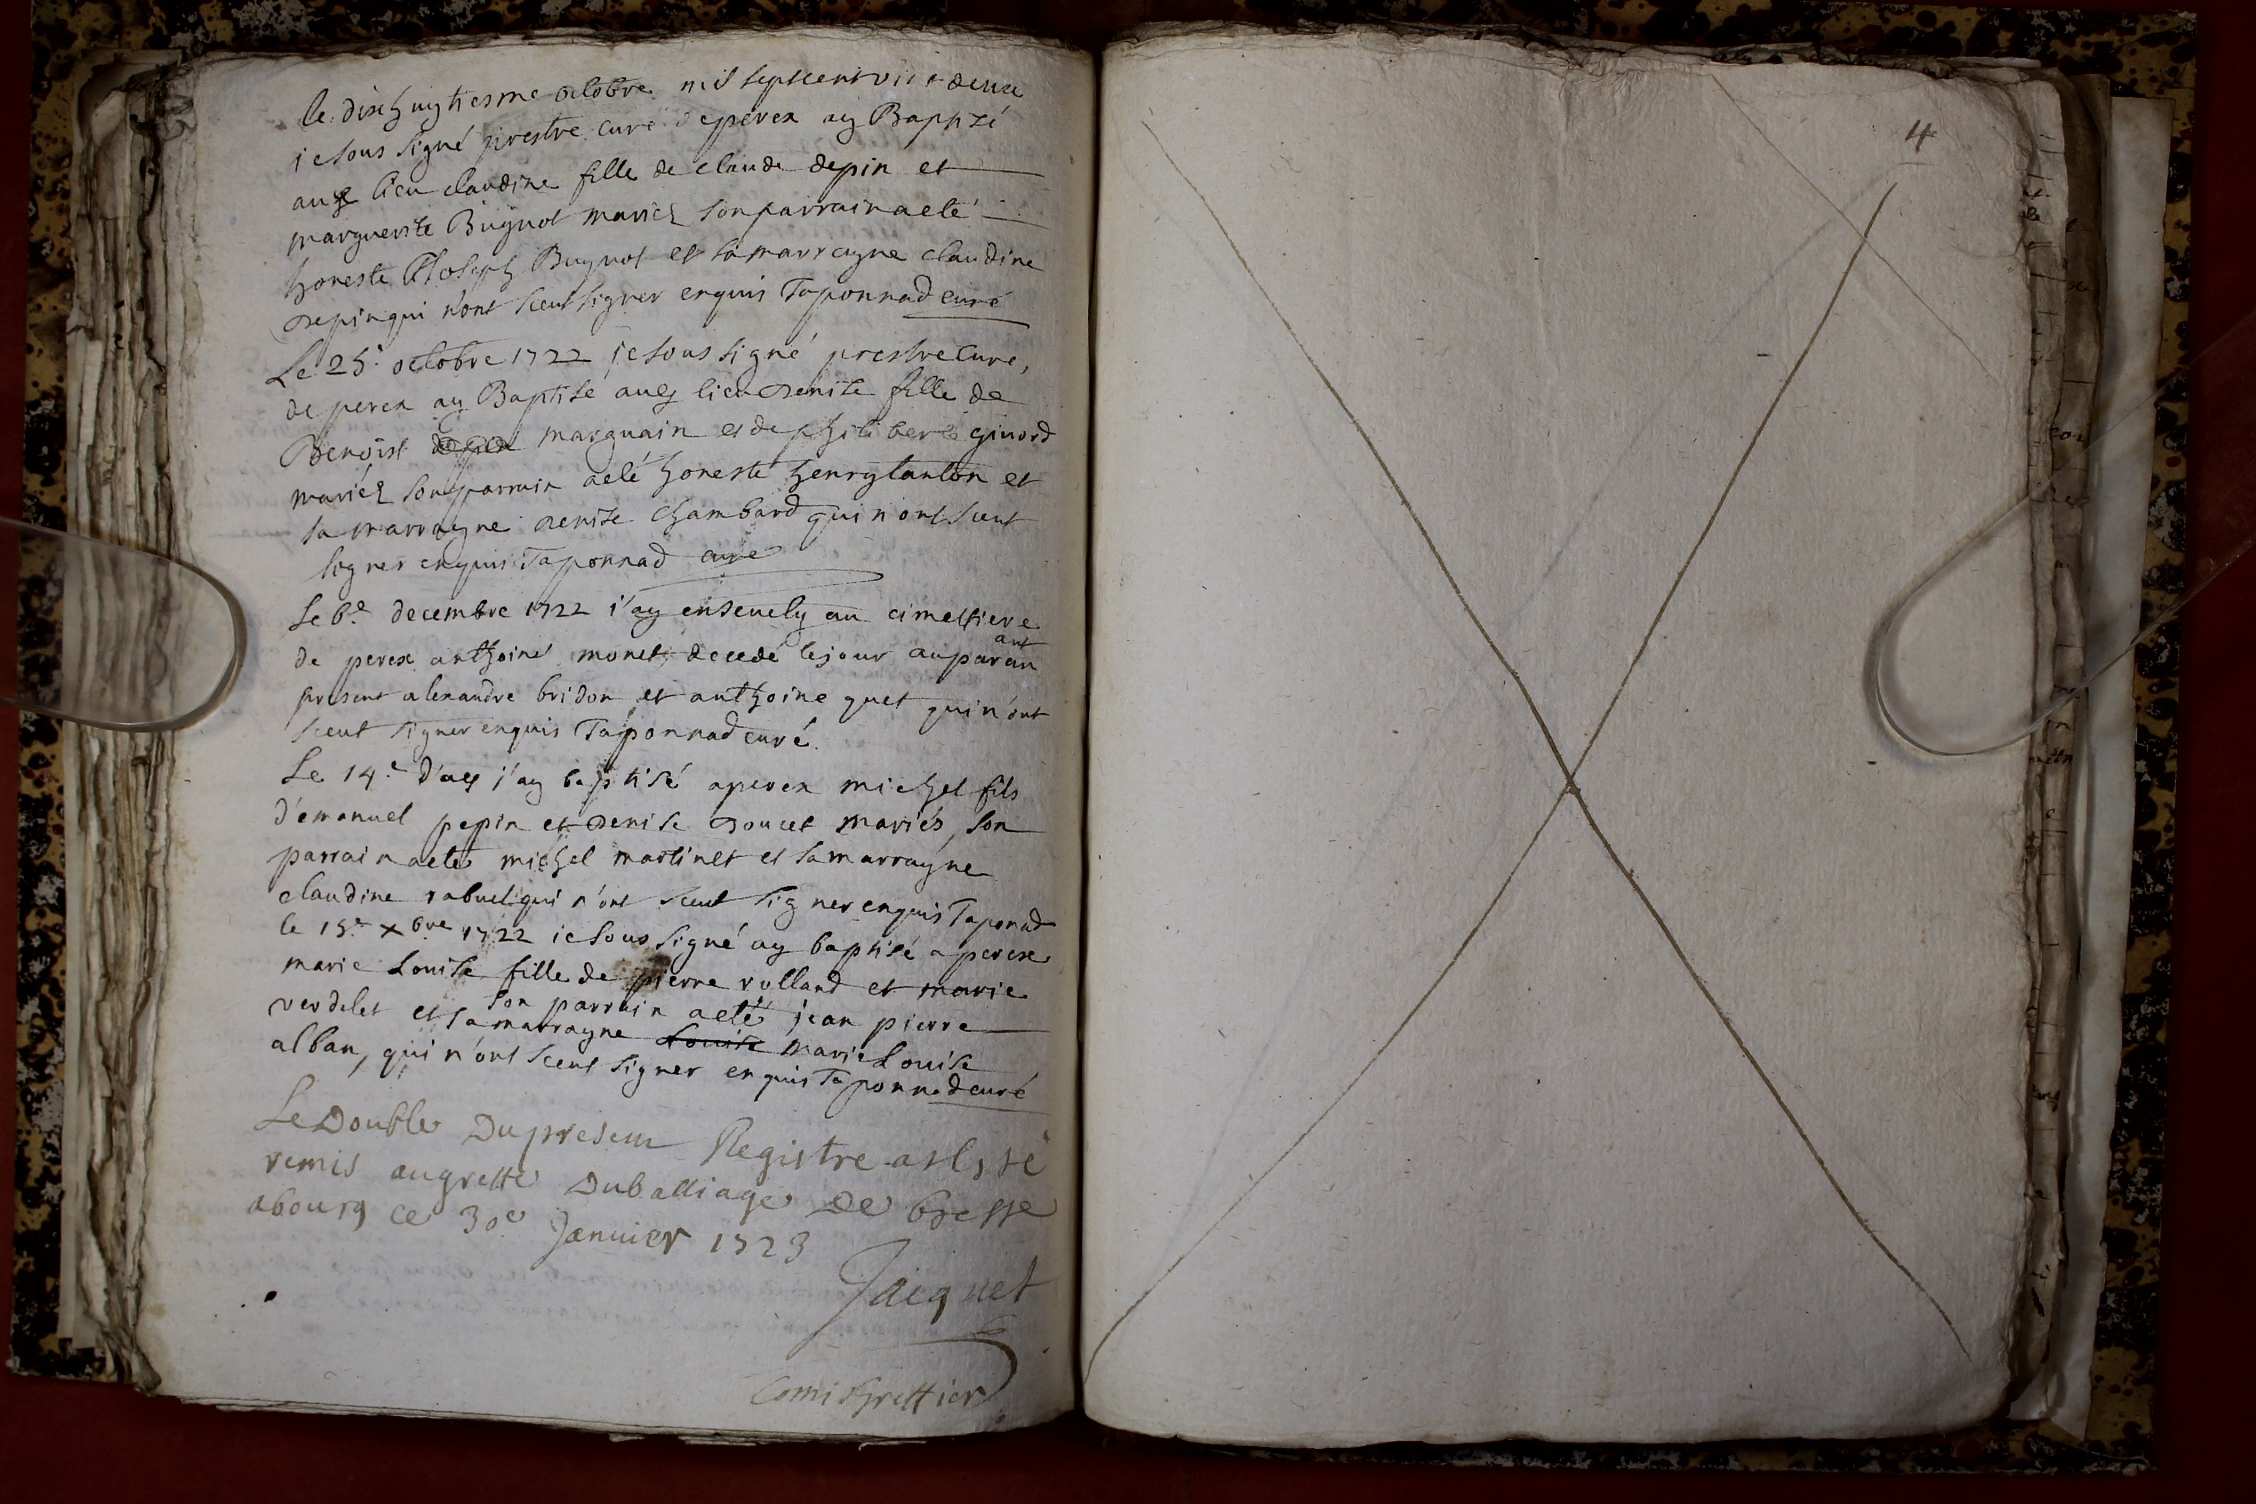 le dixhuytiesme octobre mil septcent vint deux
je sous signé prestre curé de perex ay Baptizé
audt lieu claudine fille de claude depin et
marguerite Bugnot mariez son parrain a eté
honeste Joseph Bugnot et sa marrayne claudine
depin qui n'ont sceut signer enquis Taponnad curé
Le 25e octobre 1722 je sous signé prestre Curé,
de perex ay Baptisé audt lieu denise fille de
Benoist marguain et de philiberte givord
mariez son parrain a eté honeste henry tanton et
sa marrayne denise Chambard qui n'ont sceut
signer enquis Taponnad curé
Le 6.e decembre 1722 j'ay ensevely au cimettiere
de perex anthoine monet decedé le jour auparavant
present alexandre bridon et anthoine guet qui n'ont
sceut signer enquis Taponnad curé.
Le 14.e d'udt j'ay baptisé a perex michel fils
d'emanuel pepin et denise doucet mariés, son
parrain a eté michel martinet et sa marrayne
claudine rabuel qui n'ont sceut signer enquis Taponad
le 15.e xbre 1722 je sous signé ay baptisé a perex
marie Louise fille de pierre rolland et marie
verdelet son parrain a eté jean pierre
et sa marrayne Louise marie Louise
alban, qui n'ont sceut signer enquis Taponnad curé
Le Double Du present Registre a esté
remis au greffe Du balliage De bresse
a bourg ce 30e Janvier 1723
Jacquet
Comis Greffier
4